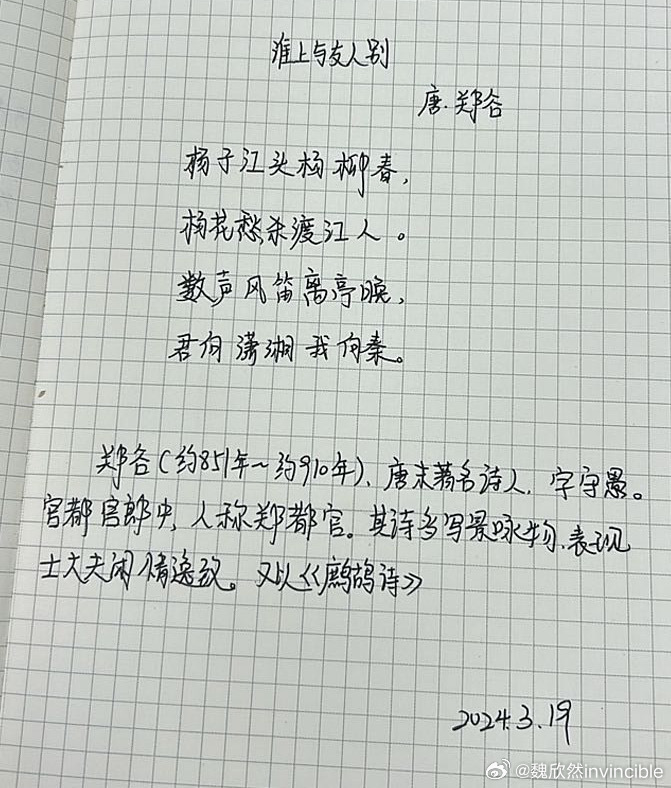 淮上与友人别
唐·郑谷
杨子江头杨柳春，
杨花愁杀渡江人。
数声风笛离亭晚，
君向潇湘我向秦。
郑谷(约851年~约910年)，唐末著名诗人，字守愚。
官都官郎中，人称郑都官。其诗多写景咏物，表现
士大夫闲情逸致。又以《鹧鸪诗》
2024.3.19
@魏欣然invincible